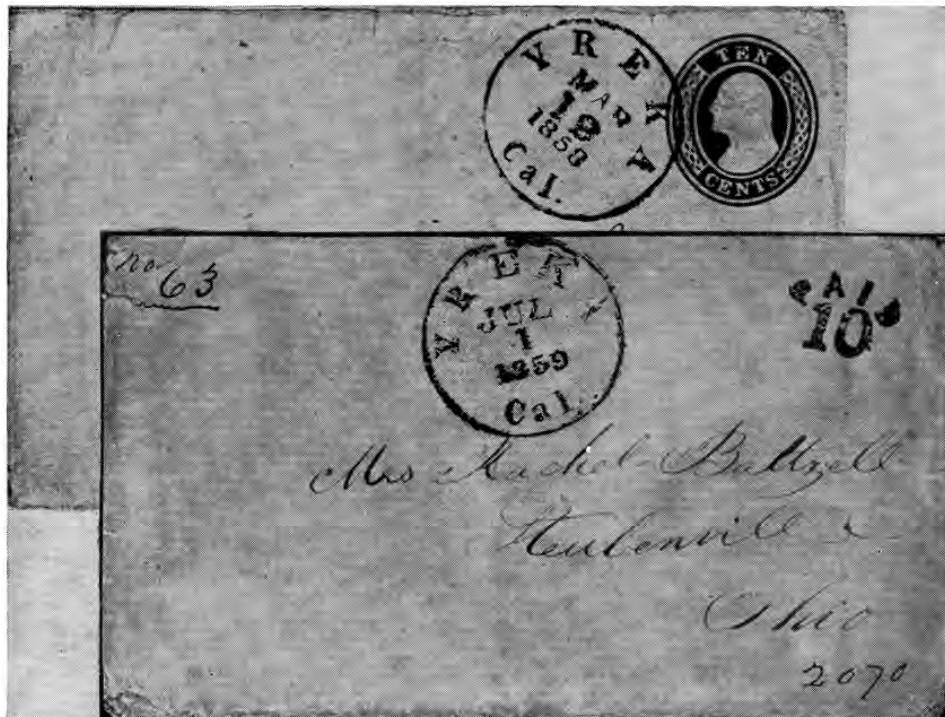 YREKA
MAR
19
1858
Cal.
TEN
CENTS
no
63
YREKA
JUL
1
1859
Cal.
PAID
10
Mrs Rachel Baltzell
Steubenville
Ohio
2070